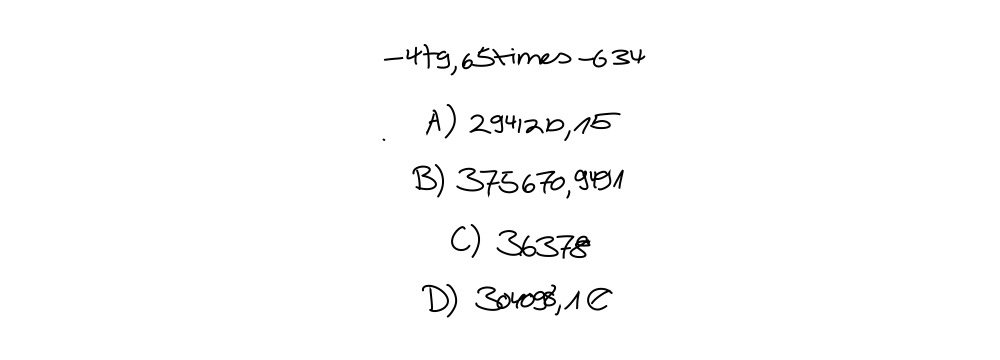 -479,65times-634
A) 294120,15
B) 375670,9491
C) 36378
D) 304098,1